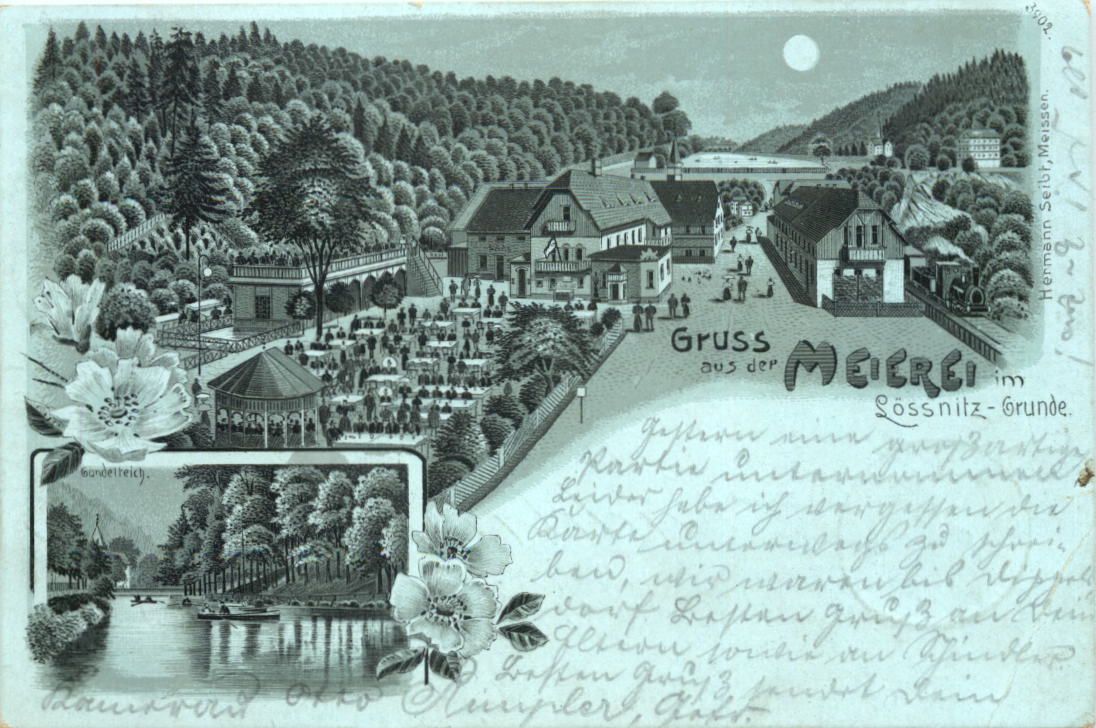 3902.
Hermann Seibt, Meissen.
Gruss
aus der MEIEREI im
Lössnitz-Grunde.
Gondelteich.
Gestern eine großartige
Partie unternommen
Leider habe ich vergessen die
Karte unterwegs zu schrei-
ben, wir waren bis Dippels
dorf Besten Gruß an Dein
Eltern sowie an Schindler
Besten Gruß sendet Dein
Kamerad Otto